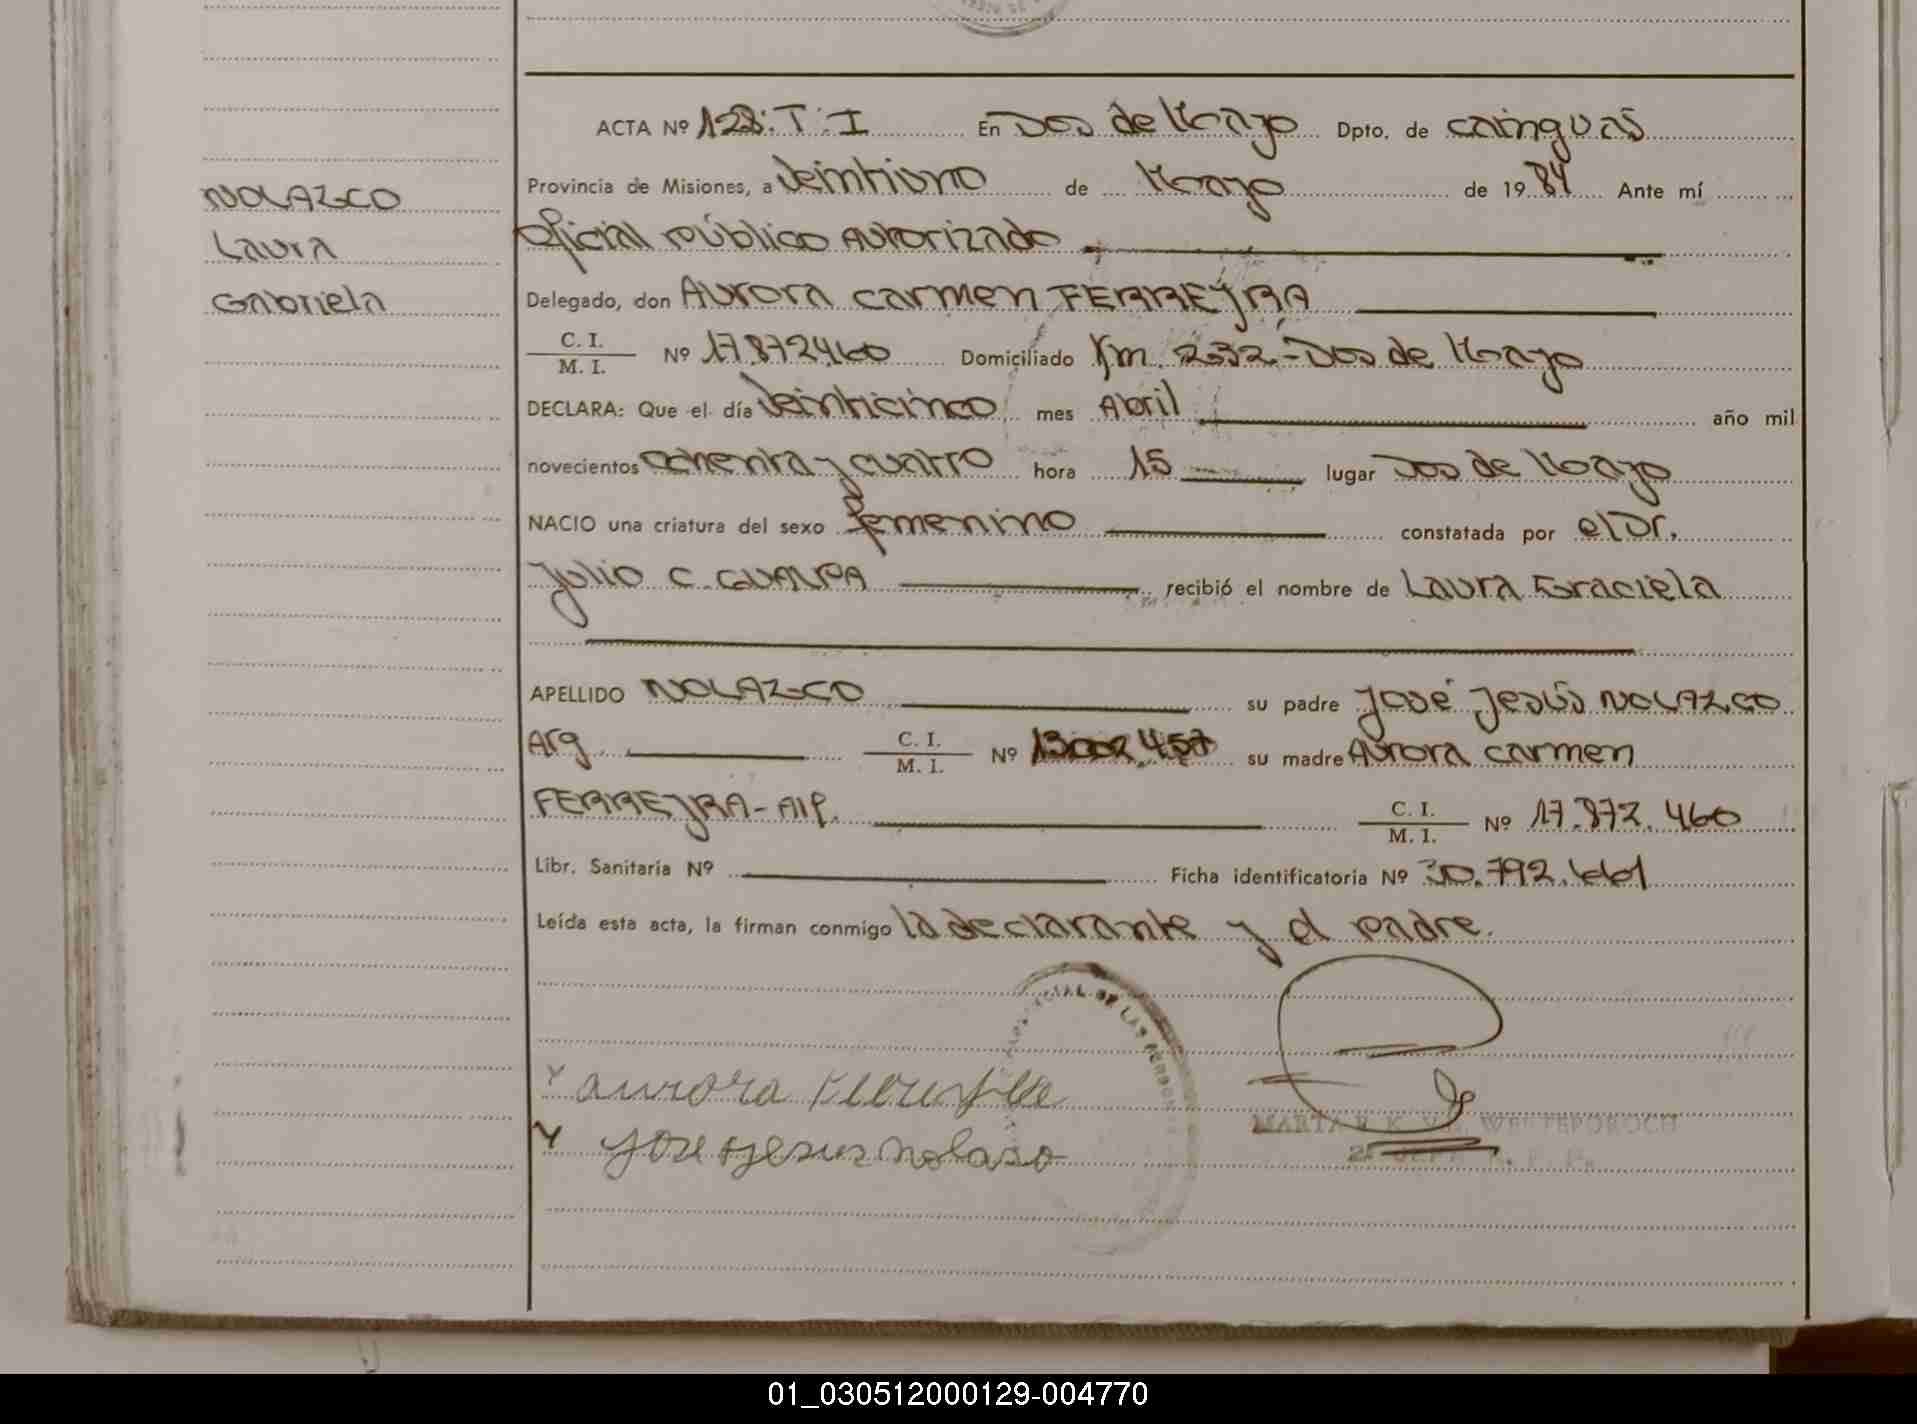 ACTA Nº 128. T. I En Dos de Mayo Dpto. de Cainguás
Provincia de Misiones, a Veintiuno de Mayo de 1984 Ante mí
Oficial Público Autorizado
Delegado, don Aurora Carmen FERREYRA
C. I.
M. I. Nº 17.872460 Domiciliado Km. 232.- Dos de Mayo
DECLARA: Que el día Veinticinco mes Abril año mil
novecientos ochenta y cuatro hora 15 lugar Dos de Mayo
NACIO una criatura del sexo femenino constatada por el Dr.
Julio C. GUALPA recibió el nombre de Laura Graciela
APELLIDO NOLAZCO su padre José Jesús NOLAZCO
Arg C. I.
M. I. Nº 13.002.457 su madre Aurora Carmen
FERREYRA - Arg. C. I.
M. I. Nº 17.872.460
Libr. Sanitaria Nº Ficha identificatoria Nº 30.792.661
Leída esta acta, la firman conmigo la declarante y el padre.
NOLAZCO
Laura
Gabriela
aurora
Jose Jesus Nolasco
DE LAS PERSON
MARTA
01_030512000129-004770